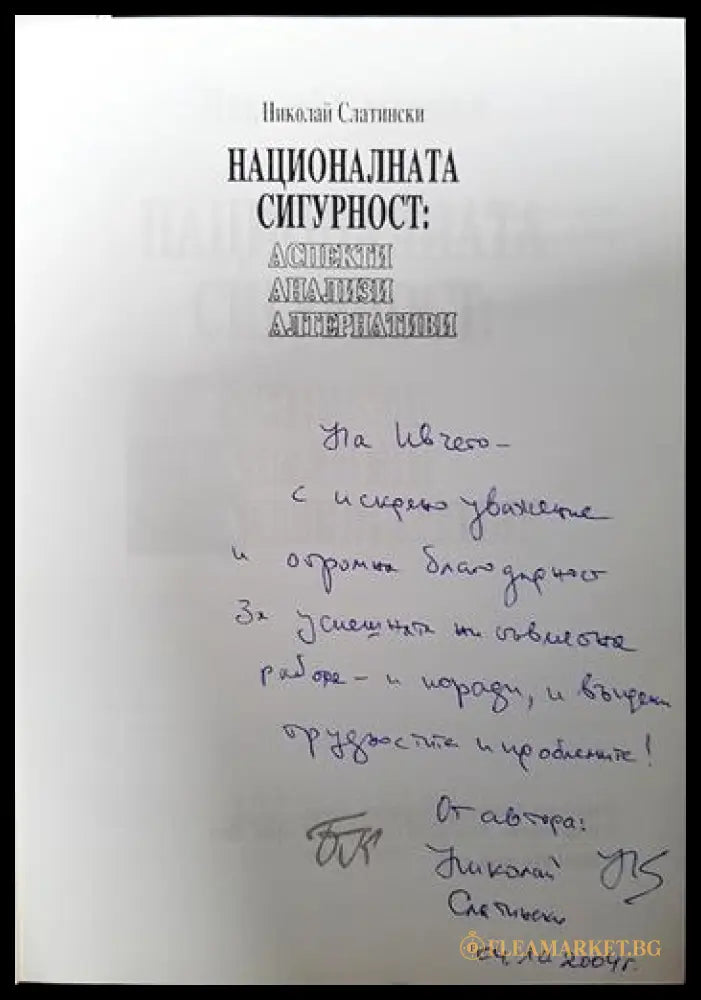 Николай Слатински
НАЦИОНАЛНАТА
СИГУРНОСТ:
АСПЕКТИ
АНАЛИЗИ
АЛТЕРНАТИВИ
На Ивчето –
с искрено уважение
и огромна благодарност
За успешната ни съвместна
работа – и поради, и въпреки
трудностите и проблемите!
От автора:
Николай
Слатински
FLEAMARKET.BG
2004г.